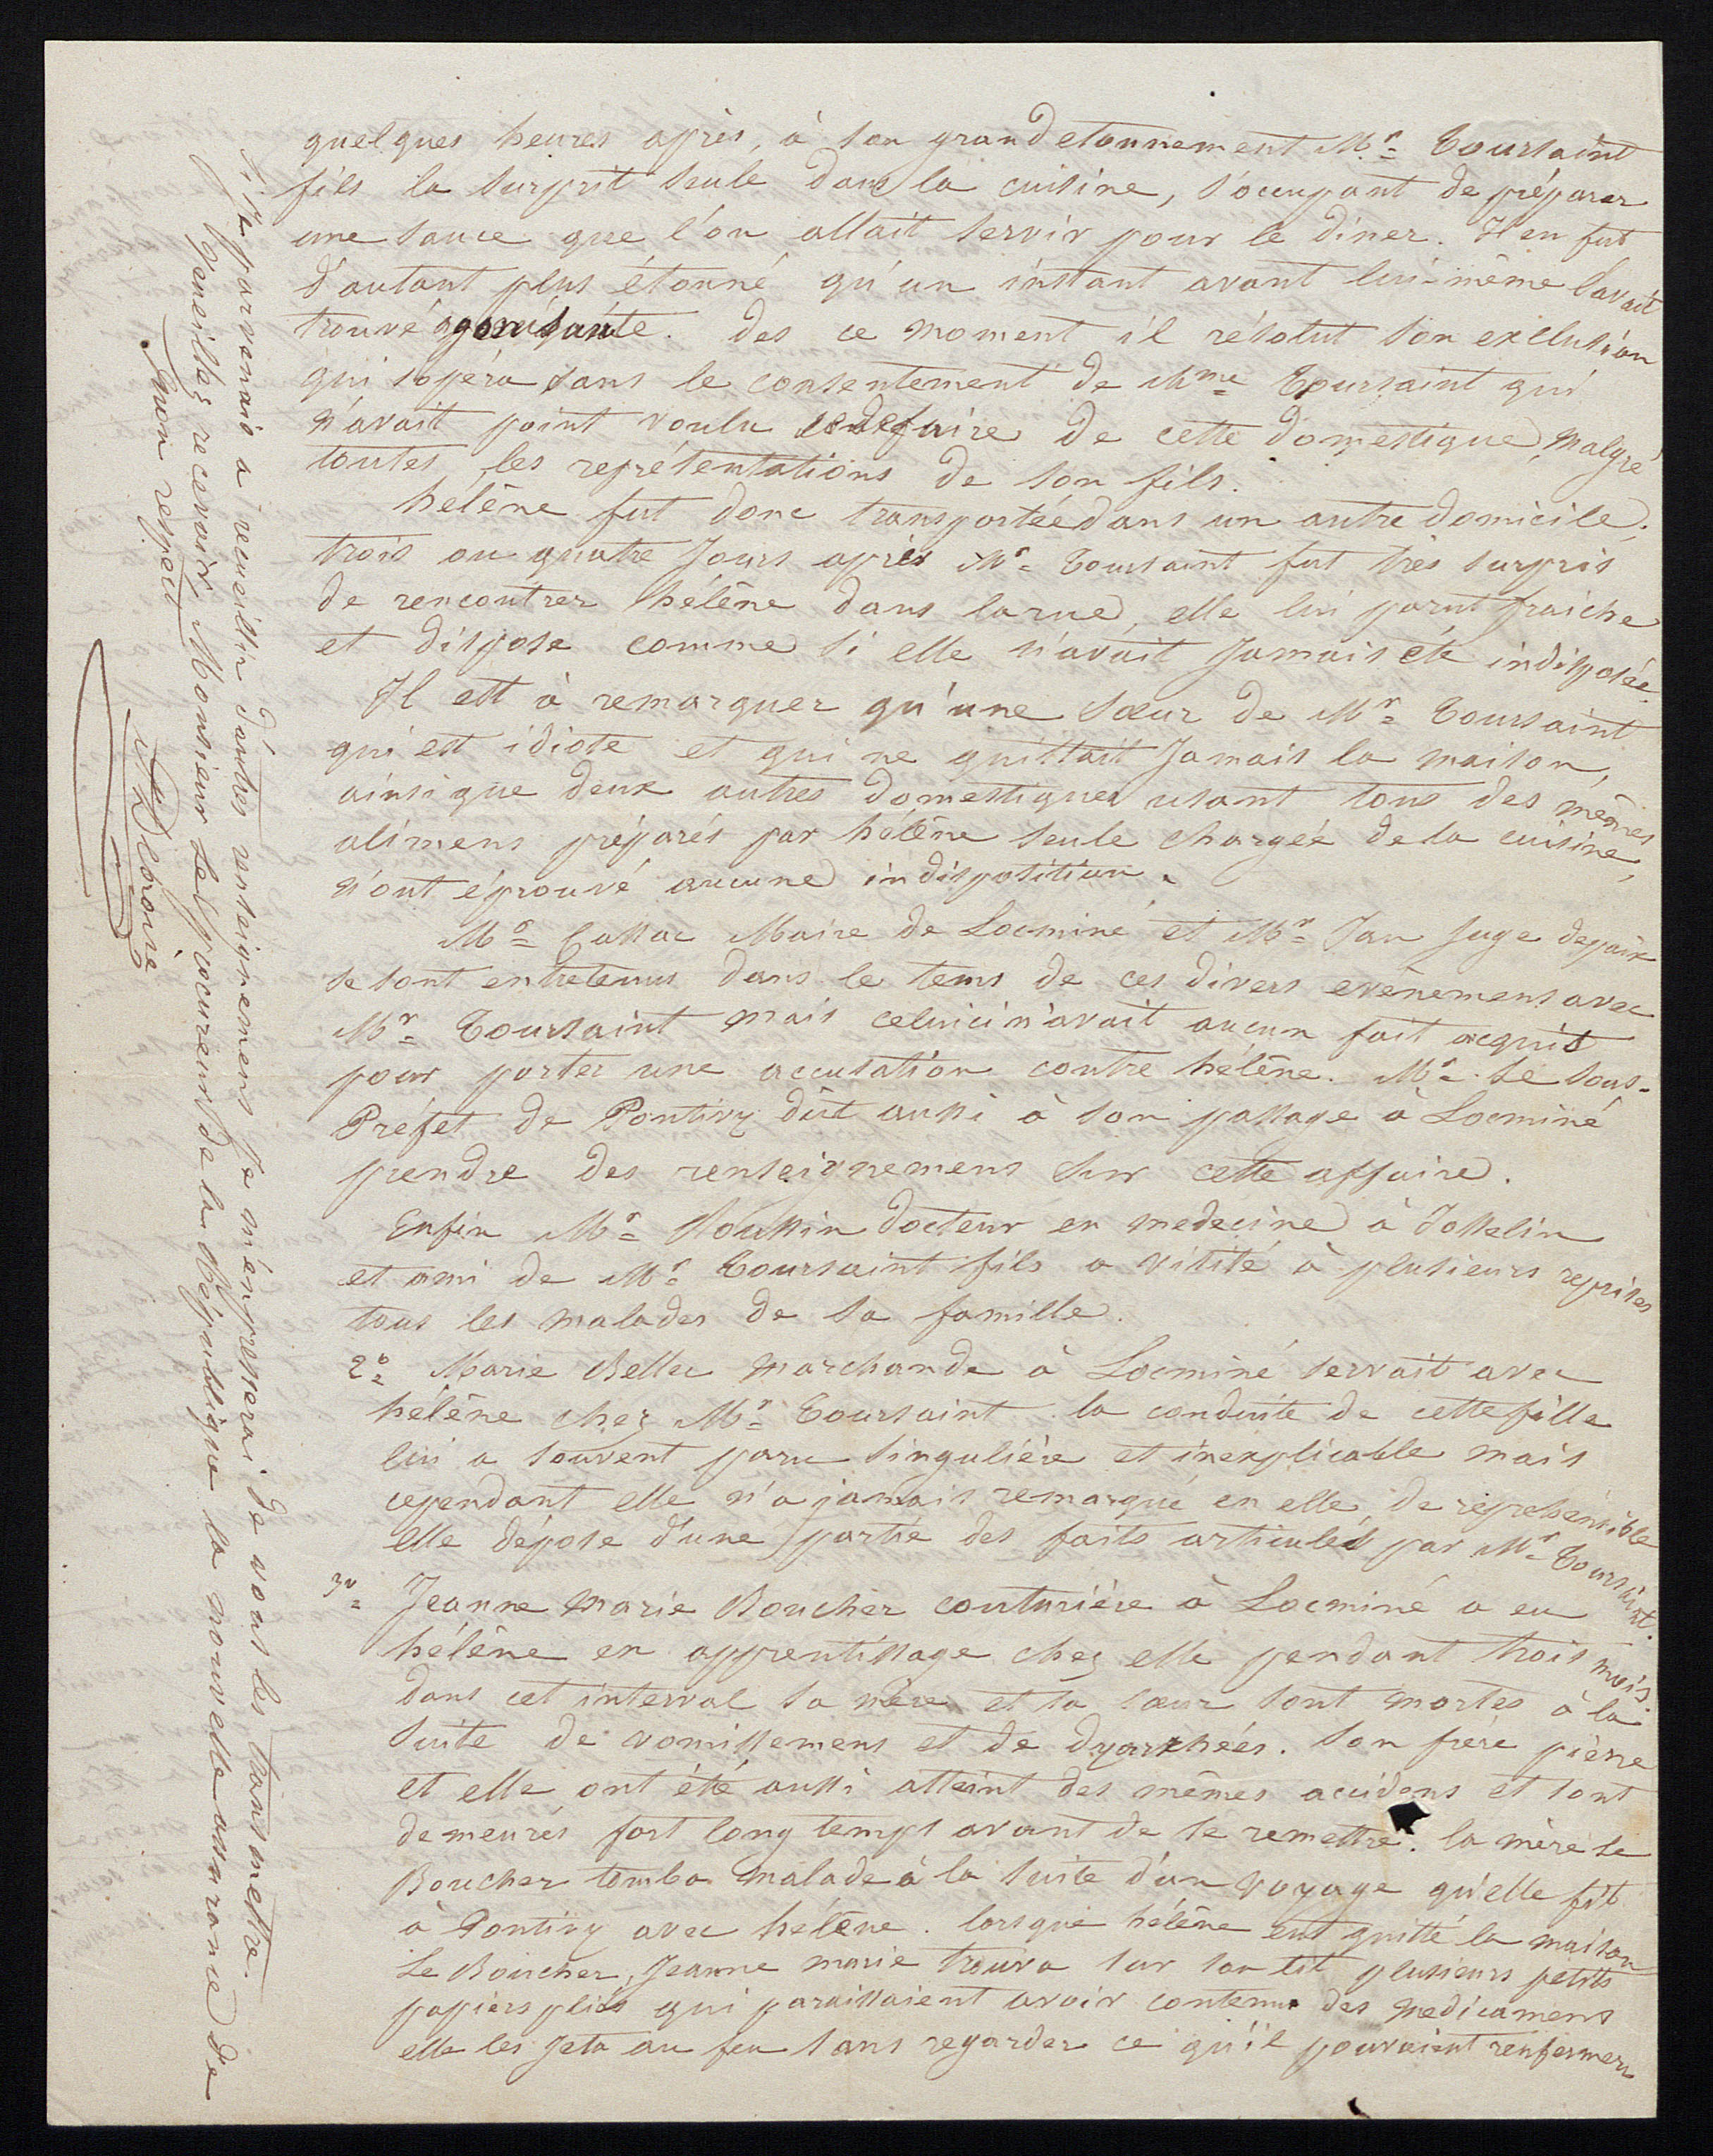 quelques heures après, à son grand etonnement Mr. Toursaint
fils la surprit seule dans la cuisine, s'occupant de préparer
une sauce que l'on allait servir pour le diner. Il en fut
d'autant plus étonné qu'un instant avant lui-même l'avait
trouvé agonisante. des ce moment il résolut son exclusion
qui s'opéra sans le consentement de Mme Toursaint qui
n'avait point voulu se defaire de cette domestique, malgré
toutes les représentations de son fils.
hélène fut donc transportée dans un autre domicile,
trois ou quatre Jours après Mr. Toursaint fut très surpris
de rencontrer hélène dans la rue, elle lui parut fraiche
et dispose comme si elle n'avait Jamais été indisposée
Il est à remarquer qu'une sœur de Mr. Toursaint
qui est idiote et qui ne quittait Jamais la maison,
ainsi que deux autres domestiques usant tous des mêmes
alimens préparés par hélène seule chargée de la cuisine,
n'ont éprouvé aucune indisposition.
Mr. Cassac Maire de Locminé et Mr. Jan Juge depaix
se sont entretenus dans le tems de ces divers evènemens avec
Mr. Toursaint mais celui ci n'avait aucun fait acquit
pour porter une accusation contre hélène. Mr. Le sous-
Préfet de Pontivy dût aussi à son passage à Locminé
prendre des renseignemens sur cette affaire.
Enfin Mr. Roussin docteur en medecine à Josselin
et ami de Mr. Toursaint fils a visité à plusieurs reprises
tous les malades de sa famille.
2o. Marie Bellec marchande à Locminé servait avec
hélène chez Mr. Toursaint la conduite de cette fille
lui a souvent paru singulière et inexplicable mais
cependant elle n'a jamais remarqué en elle de reprehensible
elle dépose d'une partie des faits articulés par Mr. Toursaint.
3o. Jeanne marie Boucher couturière à Locminé a eu
hélène en apprentissage chez elle pendant trois mois
dans cet interval sa mère et sa sœur sont mortes à la
suite de vomissemens et de dyarrhées. Son frère pièrre
et elle ont été aussi atteint des mêmes accidens et sont
demeurés fort long temps avant de se remettre. la mère Le
Boucher tomba malade à la suite d'un voyage qu'elle fit
à Pontivy avec hélène. lorsque hélène eut quitté la maison
Le Boucher, Jeanne marie trouva sur son lit plusieurs petits
papiers pliés qui paraissaient avoir contenu des medicamens
elle les Jeta au feu sans regarder ce qu'il pouvaient renfermer
Si Je parvenais a recueillir d'autres renseignemens Je m'empresserai de vous les transmettre.
Veuillez recevoir, Monsieur Le procureur de la République la nouvelle assurance de
mon respect